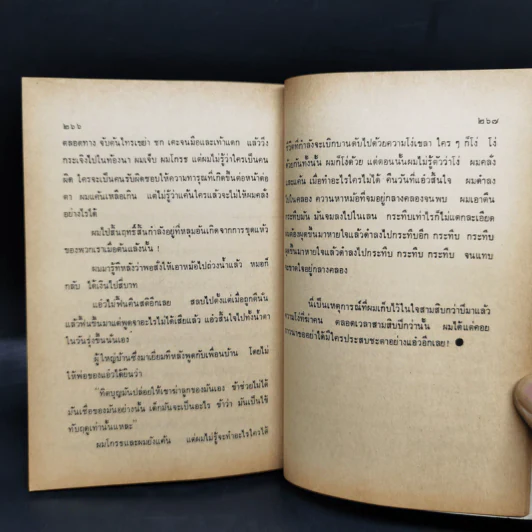 ๒๖๖
ตลอดทาง จับต้นไทรเขย่า ชก เตะจนมือและเท้าแตก แล้ววิ่ง
กระเจิงไปในท้องนา ผมเจ็บ ผมโกรธ แต่ผมไม่รู้ว่าใครเป็นคน
ผิด ใครจะเป็นคนรับผิดชอบให้ความทารุณที่เกิดขึ้นต่อหน้าต่อ
ตา ผมแค้นเหลือเกิน แต่ไม่รู้ว่าแค้นใครแล้วจะไม่ให้ผมคลั่ง
อย่างไรได้
ผมไปสิ้นฤทธิ์สิ้นกำลังอยู่ที่หลุมอันเกิดจากการขุดแห้ว
ของพวกเราเมื่อต้นแล้งนั้น !
ผมมารู้ทีหลังว่าพอสั่งให้เอาหม้อไปถ่วงน้ำแล้ว หมอก็
กลับ ได้เงินไปสี่บาท
แอ๋วไม่ฟื้นคืนสติอีกเลย สลบไปตั้งแต่เมื่อถูกตีนั่น
แล้วฟื้นขึ้นมาแต่พูดจาอะไรไม่ได้เสียแล้ว แอ๋วสิ้นใจไปทั้งน้ำตา
ในวันรุ่งขึ้นนั้นเอง
ผู้ใหญ่บ้านซึ่งมาเยี่ยมทีหลังพูดกับเพื่อนบ้าน โดยไม่
ให้พ่อของแอ๋วได้ยินว่า
"ทิดบุญมันปล่อยให้เขาฆ่าลูกของมันเอง ข้าช่วยไม่ได้
มันเชื่อของมันอย่างนั้น เด็กมันจะเป็นอะไร ข้าว่า มันเป็นไข้
ทับฤดูเท่านั้นแหละ"
ผมโกรธและผมยิ่งแค้น แต่ผมไม่รู้จะทำอะไรใครได้
๒๖๗
ชีวิตที่กำลังจะเบิกบานดับไปด้วยความโง่เขลา ใคร ๆ ก็โง่ โง่
ด้วยกันทั้งนั้น ผมก็โง่ด้วย แต่ตอนนั้นผมไม่รู้ตัวว่าโง่ ผมคลั่ง
และแค้น เมื่อทำอะไรใครไม่ได้ คืนวันที่แอ๋วสิ้นใจ ผมดำลง
ไปในคลอง ควานหาหม้อที่จมอยู่กลางคลองจนพบ ผมเอาตีน
กระทืบมัน มันจมลงไปในเลน กระทืบเท่าไรก็ไม่แตกละเอียด
ผมต้องผุดขึ้นมาหายใจแล้วดำลงไปกระทืบอีก กระทืบ กระทืบ
ผุดขึ้นมาหายใจแล้วดำลงไปกระทืบ กระทืบ กระทืบ จนแทบ
ขาดใจอยู่กลางคลอง
นี่เป็นเหตุการณ์ที่ผมเก็บไว้ในใจสามสิบกว่าปีมาแล้ว
ความโง่ที่ฆ่าคน ตลอดเวลาสามสิบปีกว่านั้น ผมได้แต่คอย
ภาวนาขออย่าได้มีใครประสบชะตาอย่างแอ๋วอีกเลย! ●